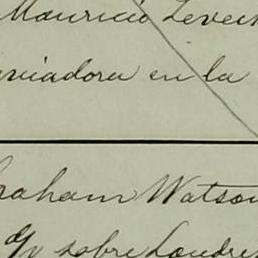 Mauricio Levec
eviadora en la
raham Watson
d/v sobre Londres